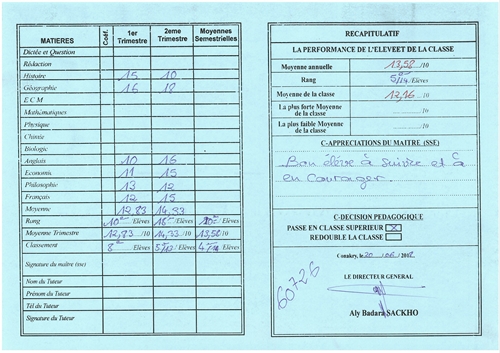 MATIERES Coéf. 1er Trimestre 2eme Trimestre Moyennes Semestrielles
Dictée et Question
Rédaction
Histoire 15 10
Géographie 16 18
E C M
Mathématiques
Physique
Chimie
Biologie
Anglais 10 16
Economie 11 15
Philosophie 13 12
Français 12 15
Moyenne 12,83 14,33
Rang Elèves Elèves Elèves
Moyenne Trimestre 12,83 /10 14,33 /10 13,58/10
Classement 8e Elèves Elèves Elèves
Signature du maître (sse)
Nom du Tuteur
Prénom du Tuteur
Tél du Tuteur
Signature du Tuteur
RECAPITULATIF
LA PERFORMANCE DE L'ELEVEET DE LA CLASSE
Moyenne annuelle 13,58 /10
Rang Elèves
Moyenne de la classe 12,16 /10
La plus forte Moyenne de la classe /10
La plus faible Moyenne de la classe /10
C-APPRECIATIONS DU MAITRE (SSE)
Bon élève à suivre et à
en Courager.
C-DECISION PEDAGOGIQUE
PASSE EN CLASSE SUPERIEUR
REDOUBLE LA CLASSE
Conakry, le 20
LE DIRECTEUR GENERAL
60726
Aly Badara SACKHO